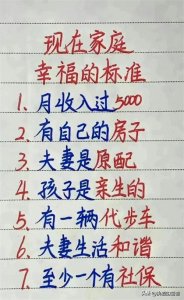 现在家庭
幸福的标准
1、月收入过5000
2、有自己的房子
3、夫妻是原配
4、孩子是亲生的
5、有一辆代步车
6、夫妻生活和谐
7、至少一个有社保